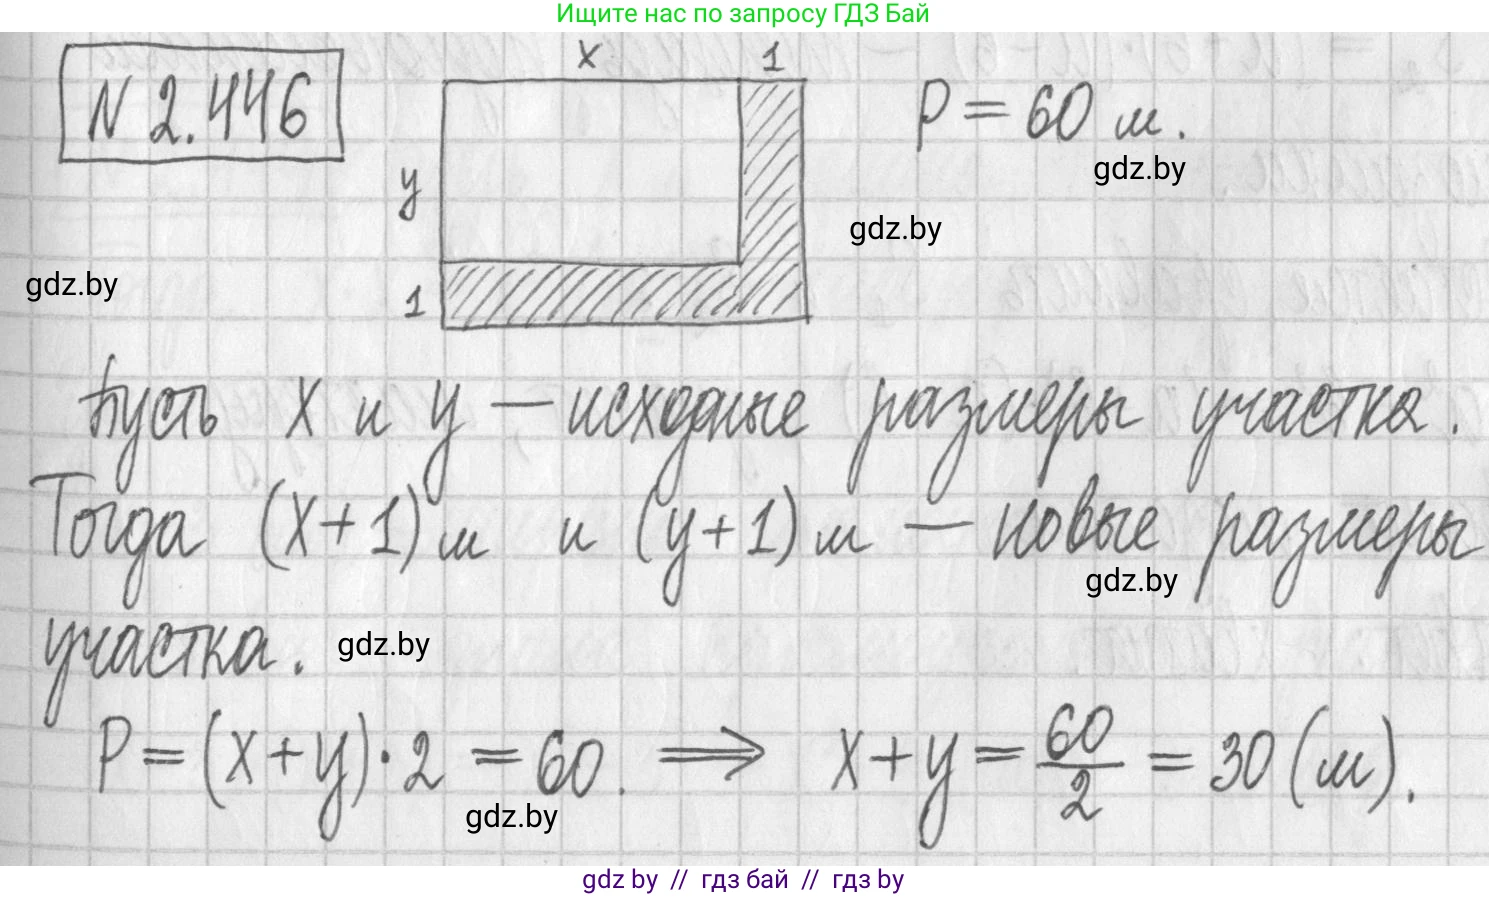 Ищите нас по запросу ГДЗ Бай
N 2.446
x 1
P = 60 м.
gdz.by
y
gdz.by
gdz.by
1
Пусть x и y — исходные размеры участка.
Тогда (x+1) м и (y+1) м — новые размеры
gdz.by
участка.
gdz.by
P = (x+y)·2 = 60. ⟹ x+y = 60/2 = 30 (м).
gdz.by
gdz by // гдз бай // гдз by